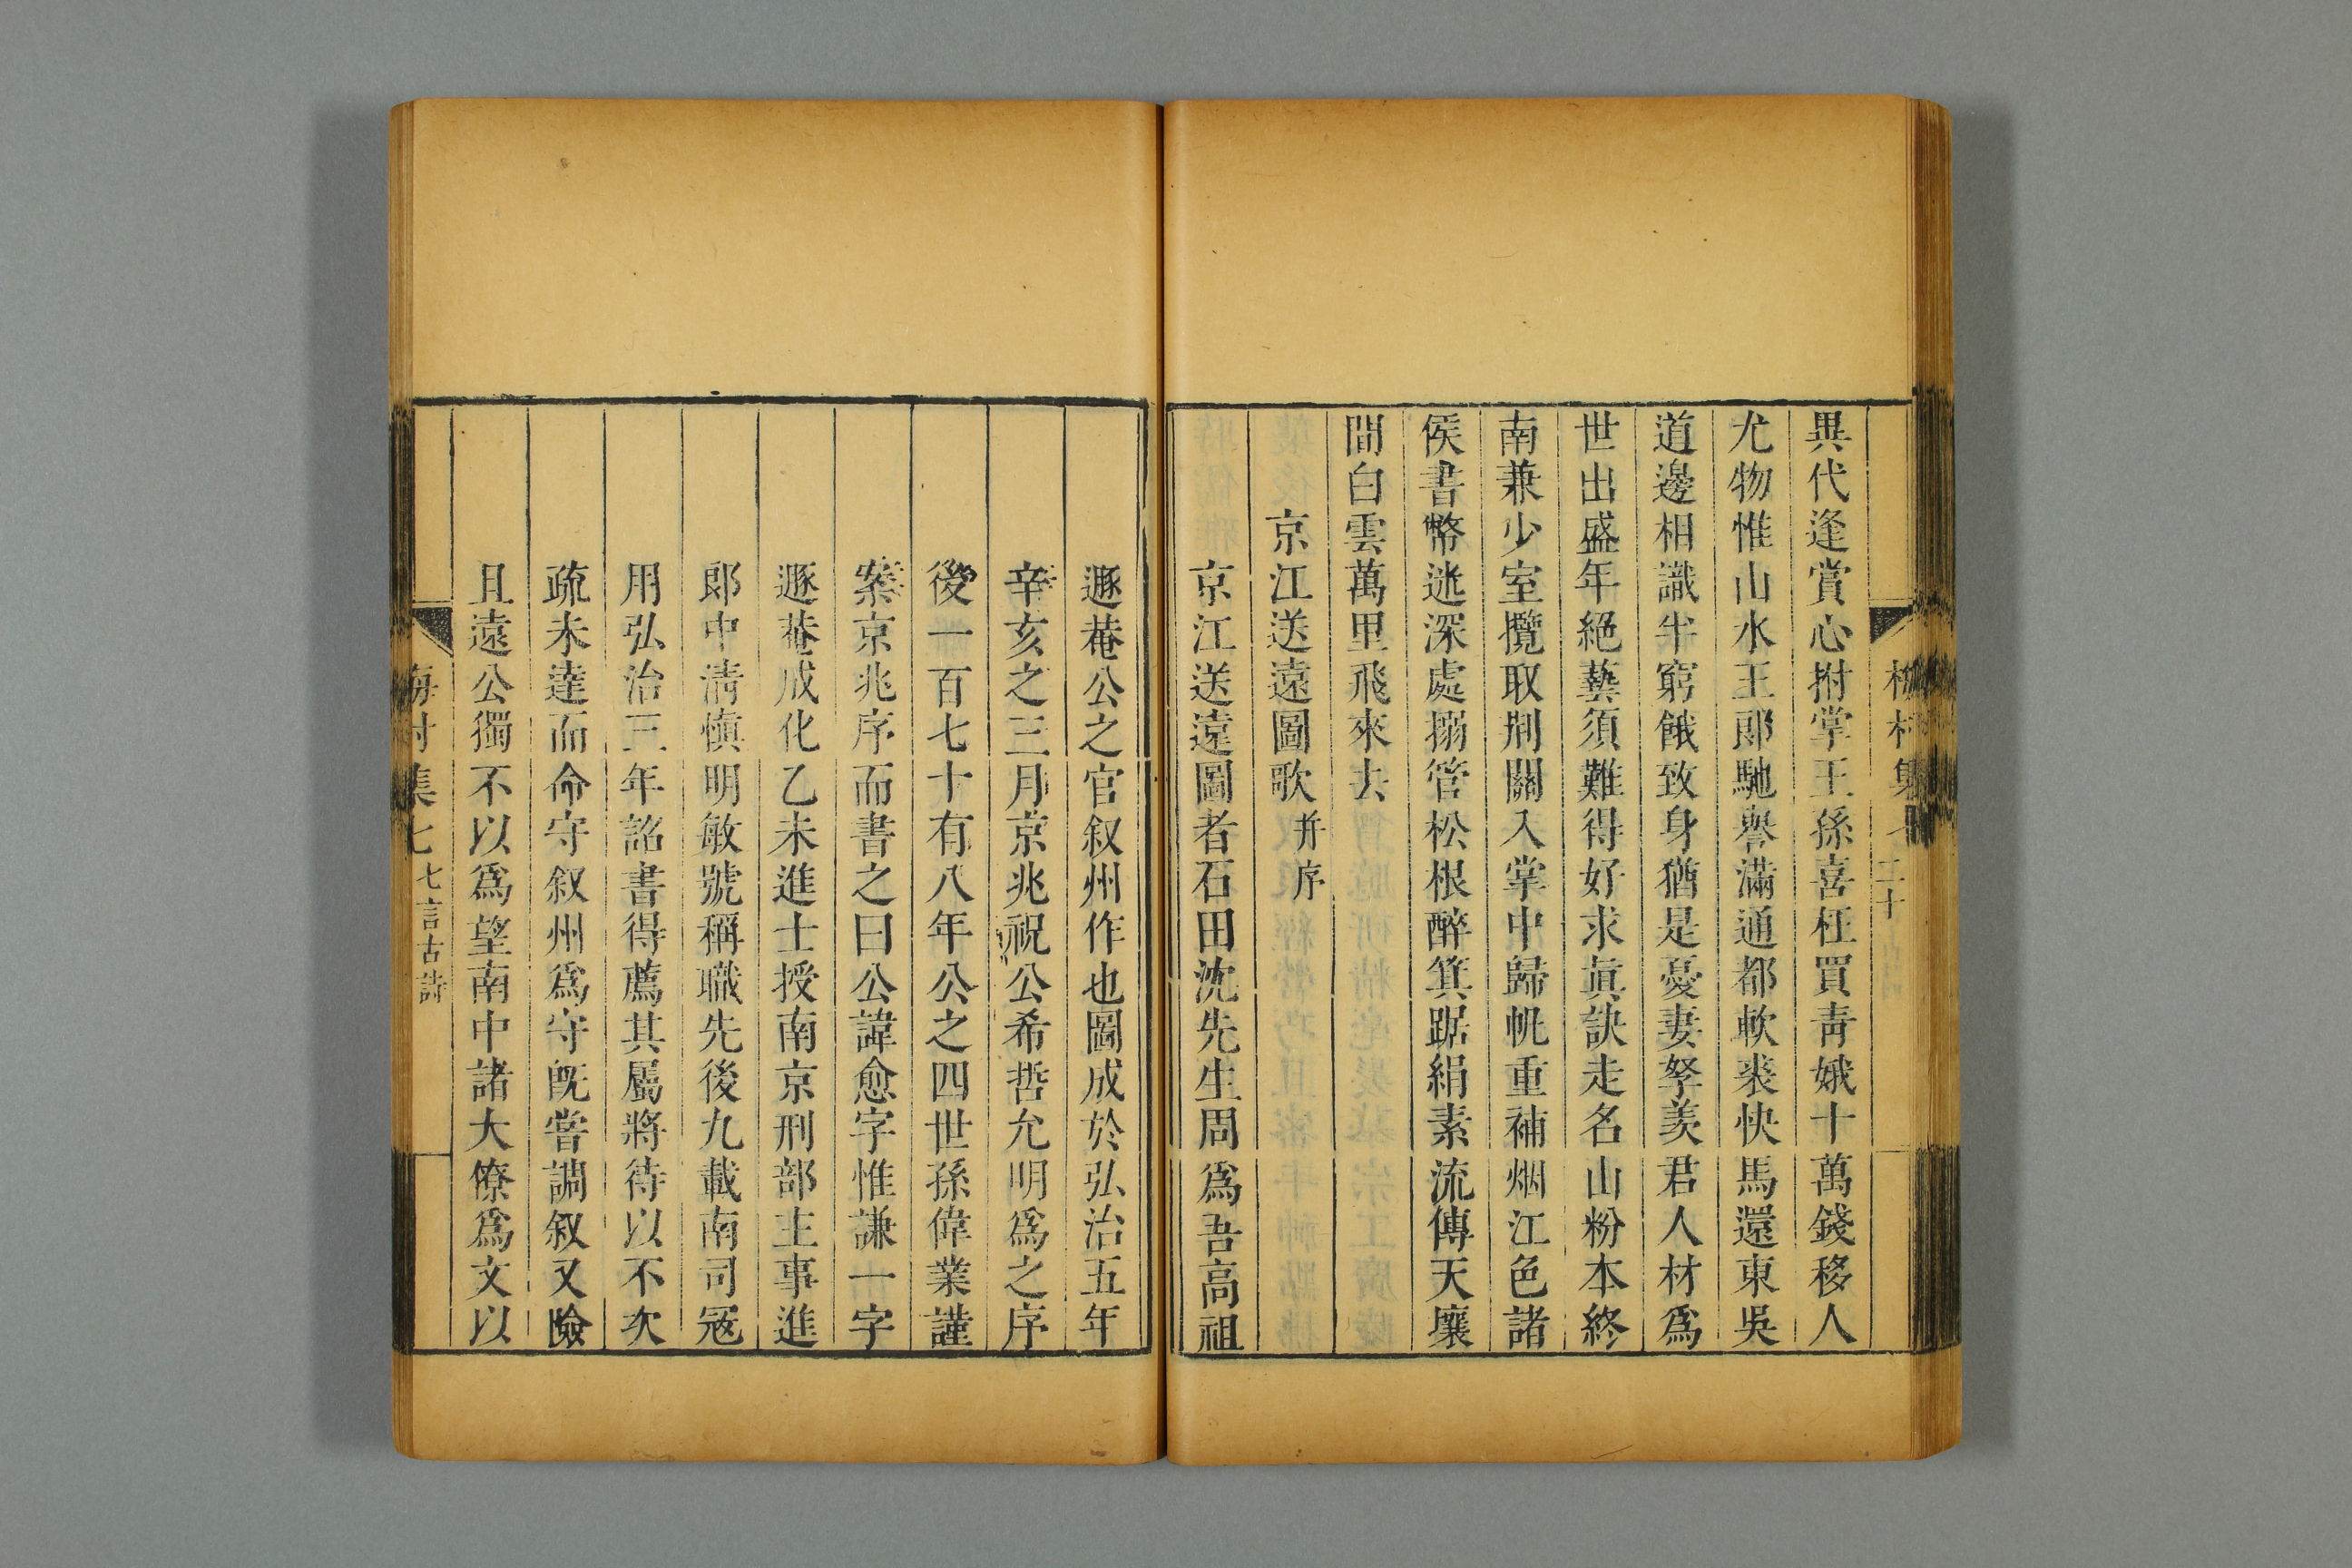 異代逢賞心拊掌王孫喜枉買靑娥十萬錢移人
尤物惟山水王郞馳譽滿通都軟裘快馬還東吳
道邊相識半窮餓致身猶是憂妻孥羡君人材爲
世出盛年絕藝須難得好求眞訣走名山粉本終
南兼少室攬取荆關入掌中歸帆重補烟江色諸
侯書幣迯深處搦管松根醉箕踞絹素流傳天壤
間白雲萬里飛來去
京江送遠圖歌并序
京江送遠圖者石田沈先生周爲吾高祖
遯菴公之官叙州作也圖成於弘治五年
辛亥之三月京兆祝公希哲允明爲之序
後一百七十有八年公之四世孫偉業謹
案京兆序而書之曰公諱愈字惟謙一字
遯菴成化乙未進士授南京刑部主事進
郞中淸愼明敏號稱職先後九載南司冦
用弘治三年詔書得薦其屬將待以不次
疏未達而命守叙州爲守旣嘗調叙又險
且遠公獨不以爲望南中諸大僚爲文以
梅村集 二十
梅村集七 七言古詩